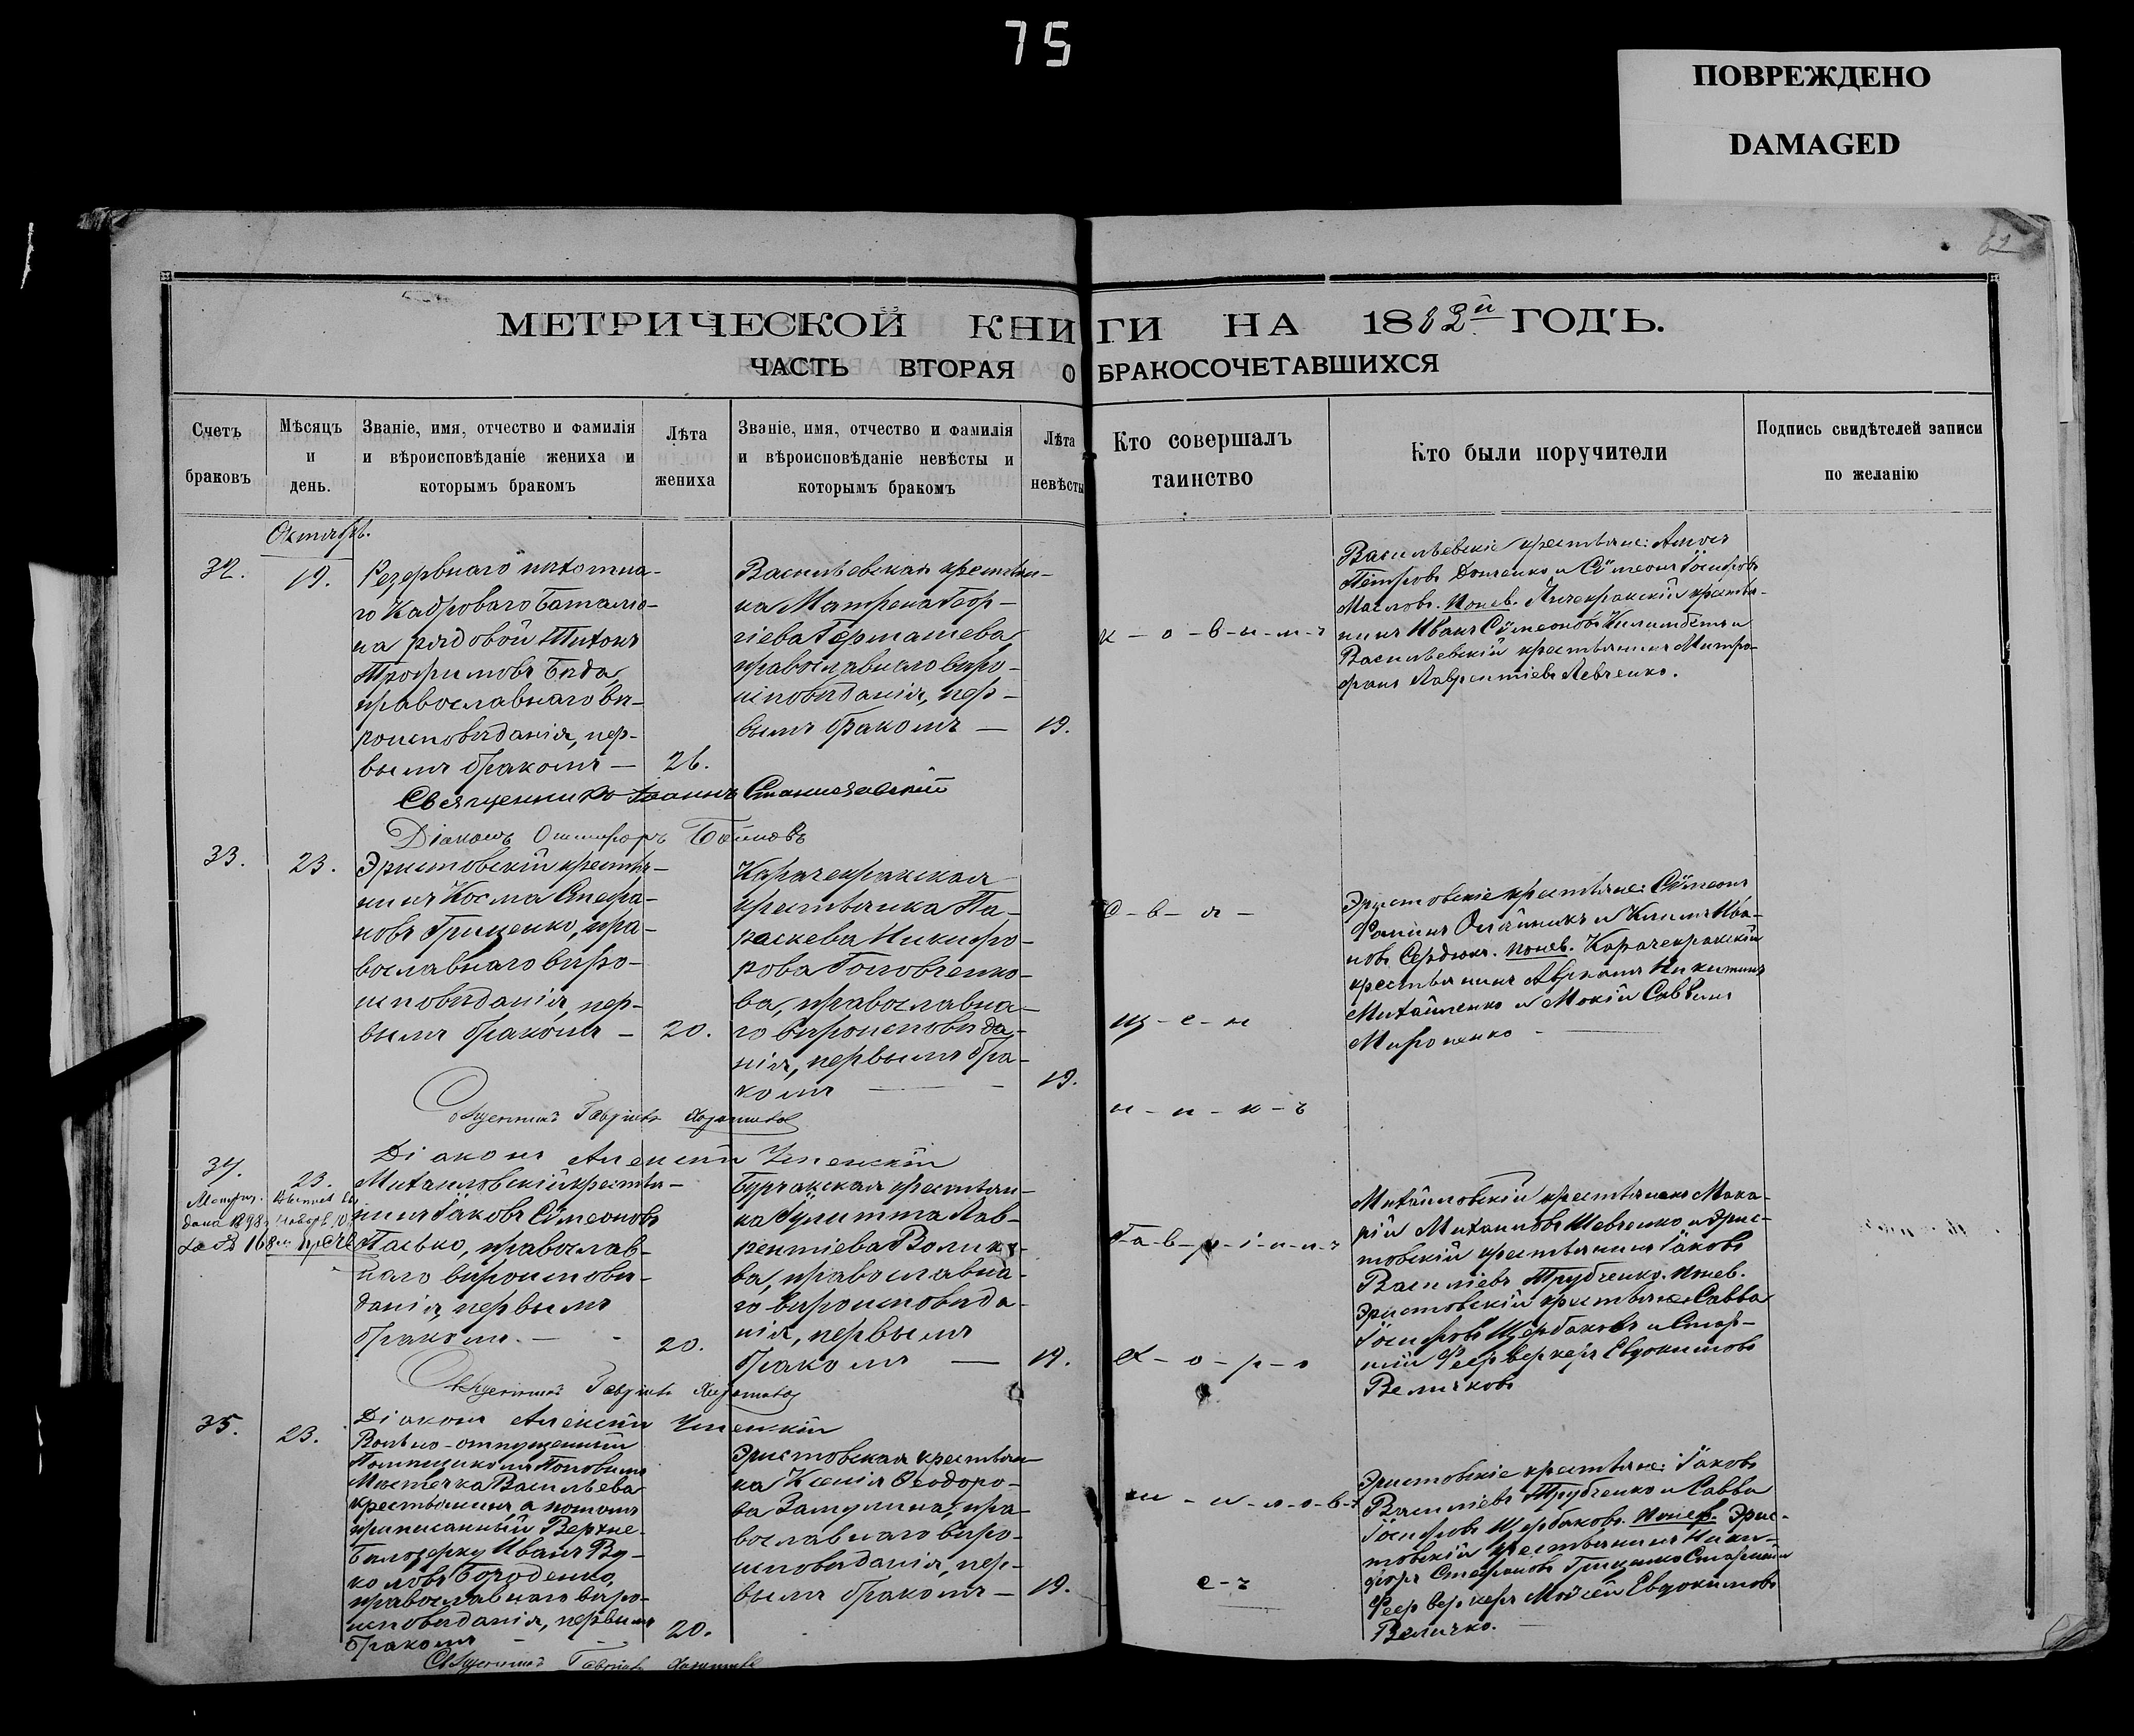 75
ПОВРЕЖДЕНО
DAMAGED
62
МЕТРИЧЕСКОЙ КНИГИ НА 1882й ГОДЪ.
ЧАСТЬ ВТОРАЯ О БРАКОСОЧЕТАВШИХСЯ
Счетъ браковъ
Мѣсяцъ и день.
Званіе, имя, отчество и фамилія и вѣроисповѣданіе жениха и которымъ бракомъ
Лѣта жениха
Званіе, имя, отчество и фамилія и вѣроисповѣданіе невѣсты и которымъ бракомъ
Лѣта невѣсты
Кто совершалъ таинство
Кто были поручители
Подпись свидѣтелей записи по желанію
Октябрь.
32.
19.
Резервнаго пѣхотна-
го Кадроваго баталіо-
на рядовой Тихонъ
Трофимовъ Бѣда,
православнаго вѣ-
роисповѣданія, пер-
вымъ бракомъ —
26.
Васильевская крестьян-
ка Матрена Геор-
гіева Гермашева
православнаго вѣро-
исповѣданія, пер-
вымъ бракомъ —
19.
к - о - в - ы - м - ъ
Васильевскіе крестьяне:
Петровъ Донченко и Сѵмеонъ Іосифовъ
Масловъ. Понев. крестья-
нинъ Иванъ Сѵмеоновъ и
Васильевскій крестьянинъ Митро-
фанъ Лаврентіевъ Левченко.
Священникъ Іоаннъ Станиславскій
Діаконъ Онисифоръ Бойковъ
33.
23.
Эристовскій крестья-
нинъ Косма Стефа-
новъ Гриценко, пра-
вославнаго вѣро-
исповѣданія, пер-
вымъ бракомъ —
20.
Карачекракская
крестьянка Па-
раскева Никифо-
рова Головченко-
ва, православна-
го вѣроисповѣда-
нія, первымъ бра-
комъ —
19.
С - в - я -
щ - е - н
н - и - к - ъ
Эристовскіе крестьяне: Сѵмеонъ
Фоминъ Олійникъ и Климъ Ива-
новъ Сердюкъ. Понев. Карачекракскій
крестьянинъ Авраамъ Никитинъ
Михайленко и Мокій Саввинъ
Мироненко
Священникъ Гавріилъ
Діаконъ Алексій Успенскій
34.
23.
Михайловскій крестья-
нинъ Іаковъ Сѵмеоновъ
Пасько, православ-
наго вѣроисповѣ-
данія, первымъ
бракомъ. —
20.
Бурчакская крестьян-
ка Іулитта Лав-
рентіева Волико-
ва, православна-
го вѣроисповѣда-
нія, первымъ
бракомъ —
19.
Г - а - в - р - і - и - л - ъ
Х - о - р - о
Михайловскій крестьянинъ Мака-
рій Михаиловъ Шевченко и Эрис-
товскій крестьянинъ Іаковъ
Василіевъ Трубченко. Понев.
Эристовскій крестьяне Савва
Іосифовъ Щербаковъ и Стар-
шій Феерверкеръ Евдокимовъ
Величковъ
Священникъ Гавріилъ
Діаконъ Алексій Успенскій
35.
23.
Вольно-отпущенный
Помѣщикомъ Поповымъ
Мѣстечка Васильева
крестьянинъ, а потомъ
приписанный Верхне-
Бѣлозерку Иванъ Ву-
коловъ Бороденко,
православнаго вѣро-
исповѣданія, первымъ
бракомъ
20.
Эристовская крестьян-
ка Ксенія Ѳеодоро-
ва Замулина, пра-
вославнаго вѣро-
исповѣданія, пер-
вымъ бракомъ —
19.
ш - и - л - о - в -
Эристовскіе крестьяне: Іаковъ
Василіевъ Трубченко и Савва
Іосифовъ Щербаковъ. Понев. Эрис-
товскій крестьянинъ Ники-
форъ Стефановъ Гриценко Старшій
Феерверкеръ Моисей Евдокимовъ
Величко.
Священникъ Гавріилъ